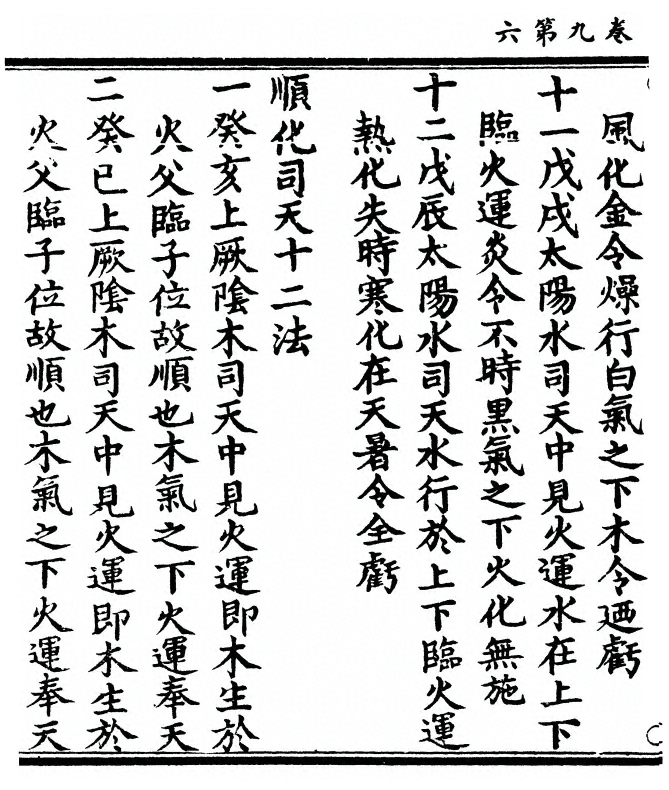 卷九第六
風化金令燥行白氣之下木令迺虧
十一戊戌太陽水司天中見火運水在上下
臨火運炎令不時黑氣之下火化無施
十二戊辰太陽水司天水行於上下臨火運
熱化失時寒化在天暑令全虧
順化司天十二法
一癸亥上厥陰木司天中見火運即木生於
火父臨子位故順也木氣之下火運奉天
二癸巳上厥陰木司天中見火運即木生於
火父臨子位故順也木氣之下火運奉天